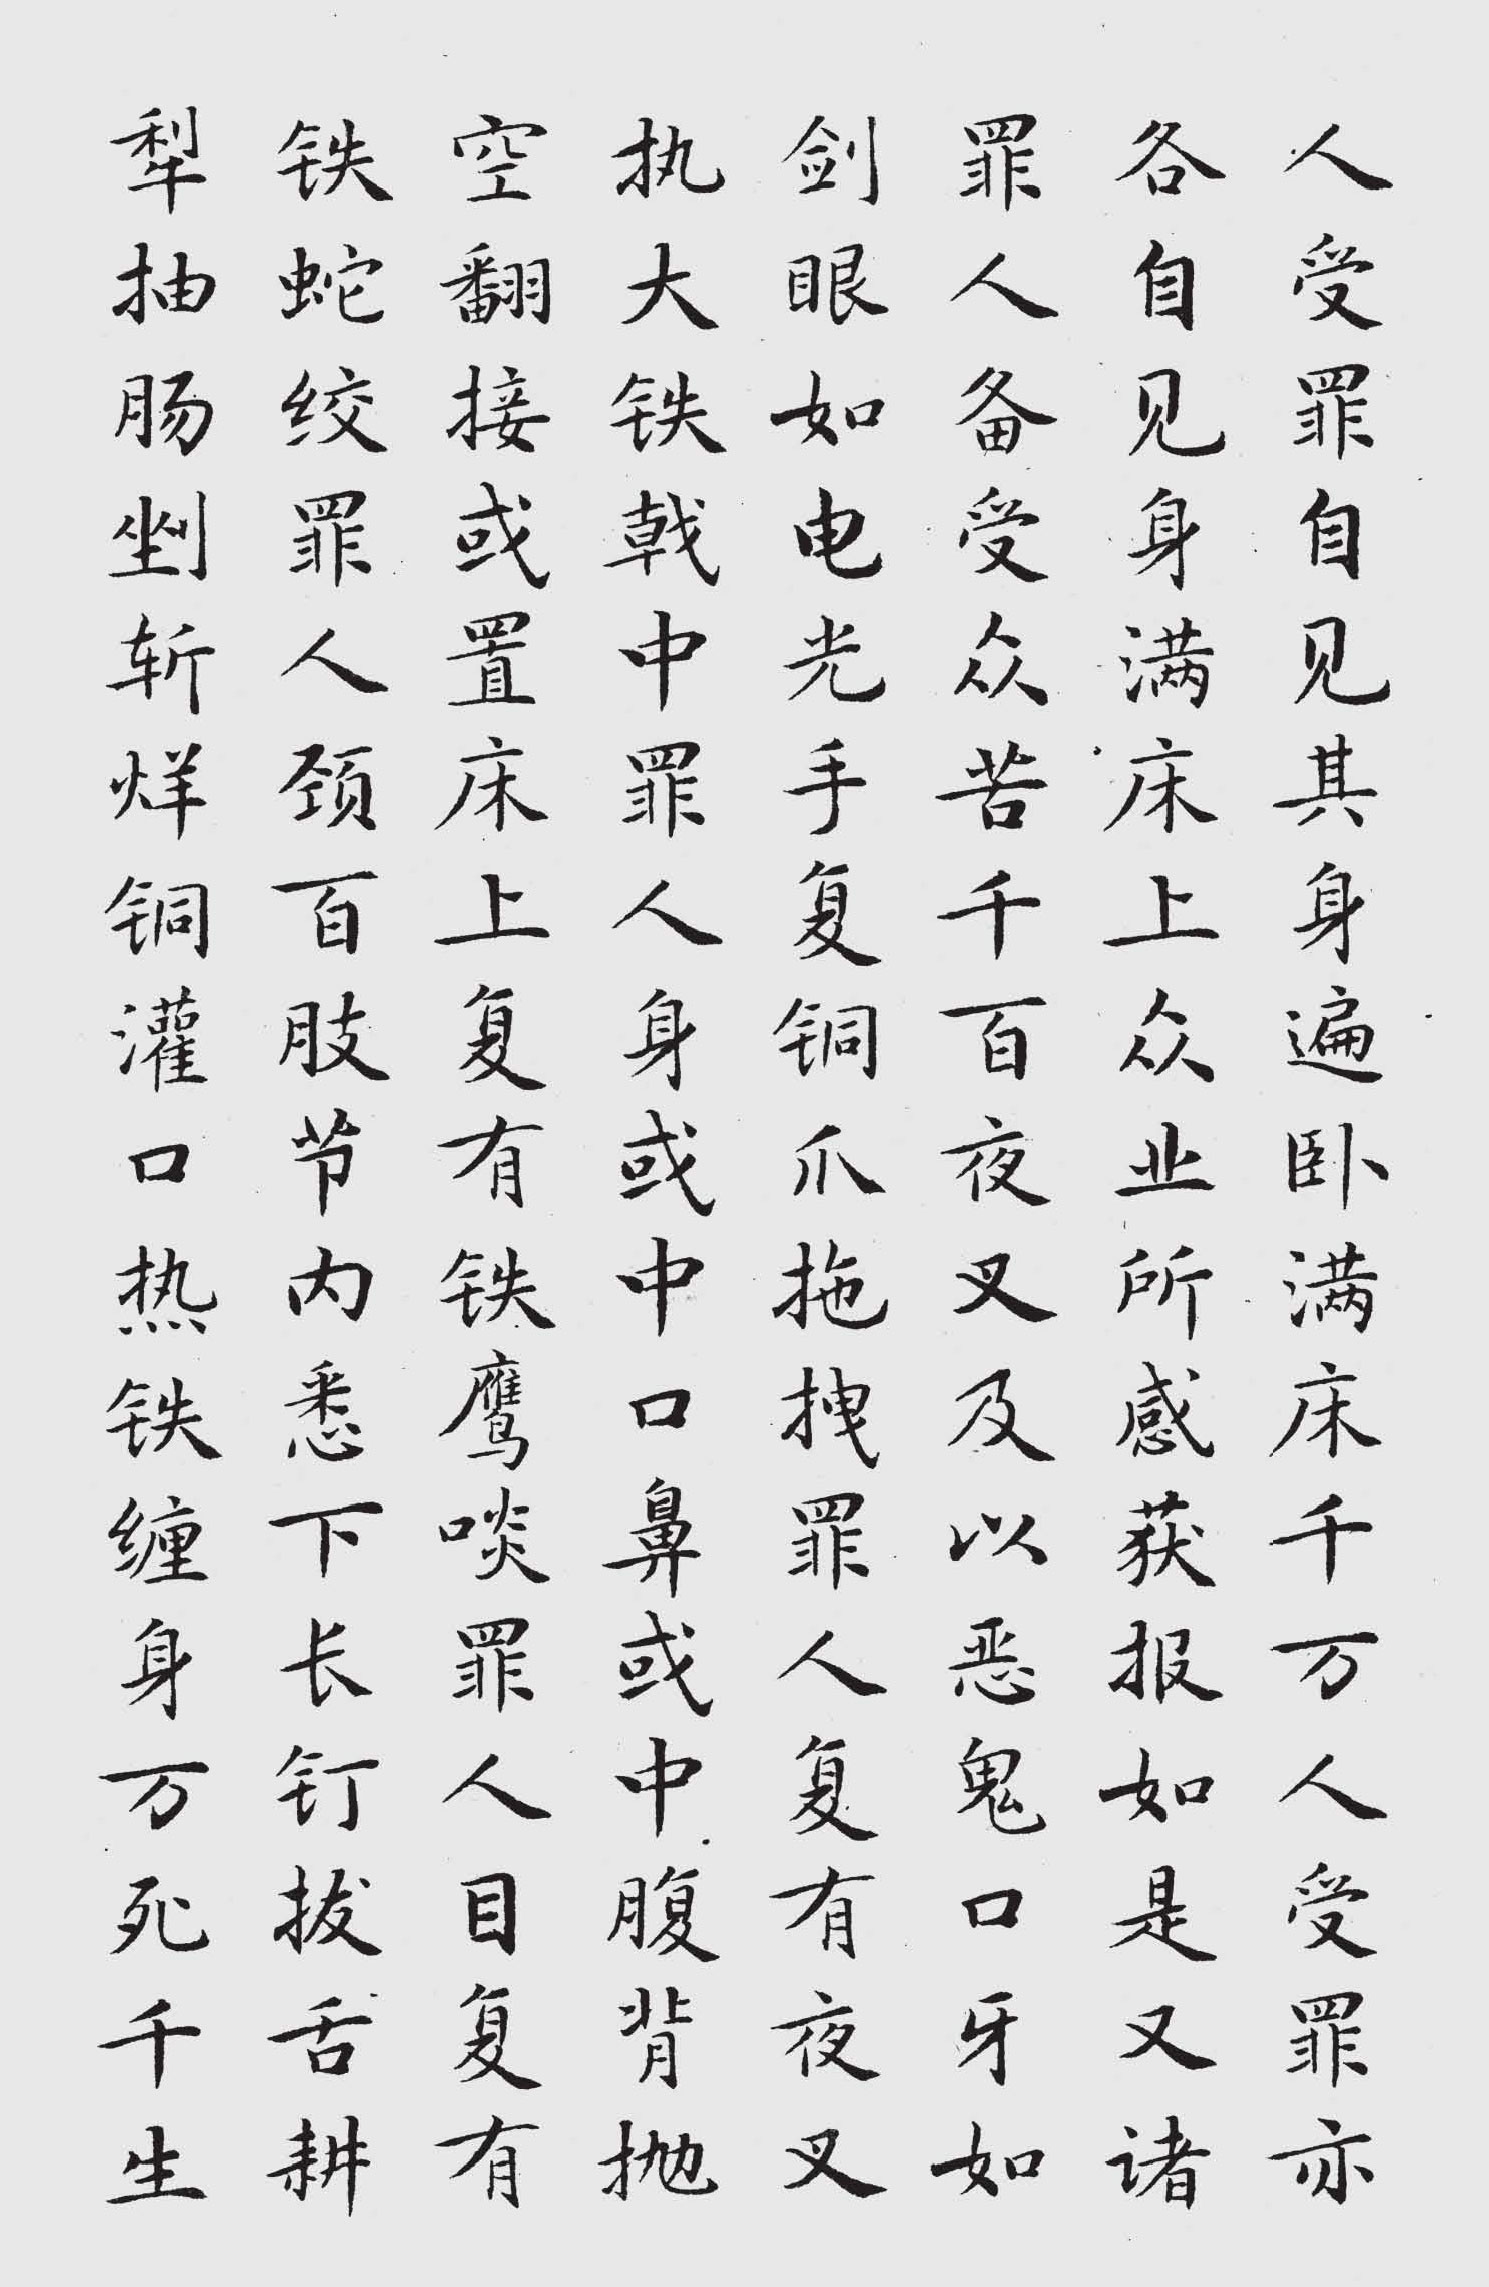 人受罪自见其身遍卧满床千万人受罪亦
各自见身满床上众业所感获报如是又诸
罪人备受众苦千百夜叉及以恶鬼口牙如
剑眼如电光手复铜爪拖拽罪人复有夜叉
执大铁戟中罪人身或中口鼻或中腹背抛
空翻接或置床上复有铁鹰啖罪人目复有
铁蛇绞罪人颈百肢节内悉下长钉拔舌耕
犁抽肠剉斩烊铜灌口热铁缠身万死千生